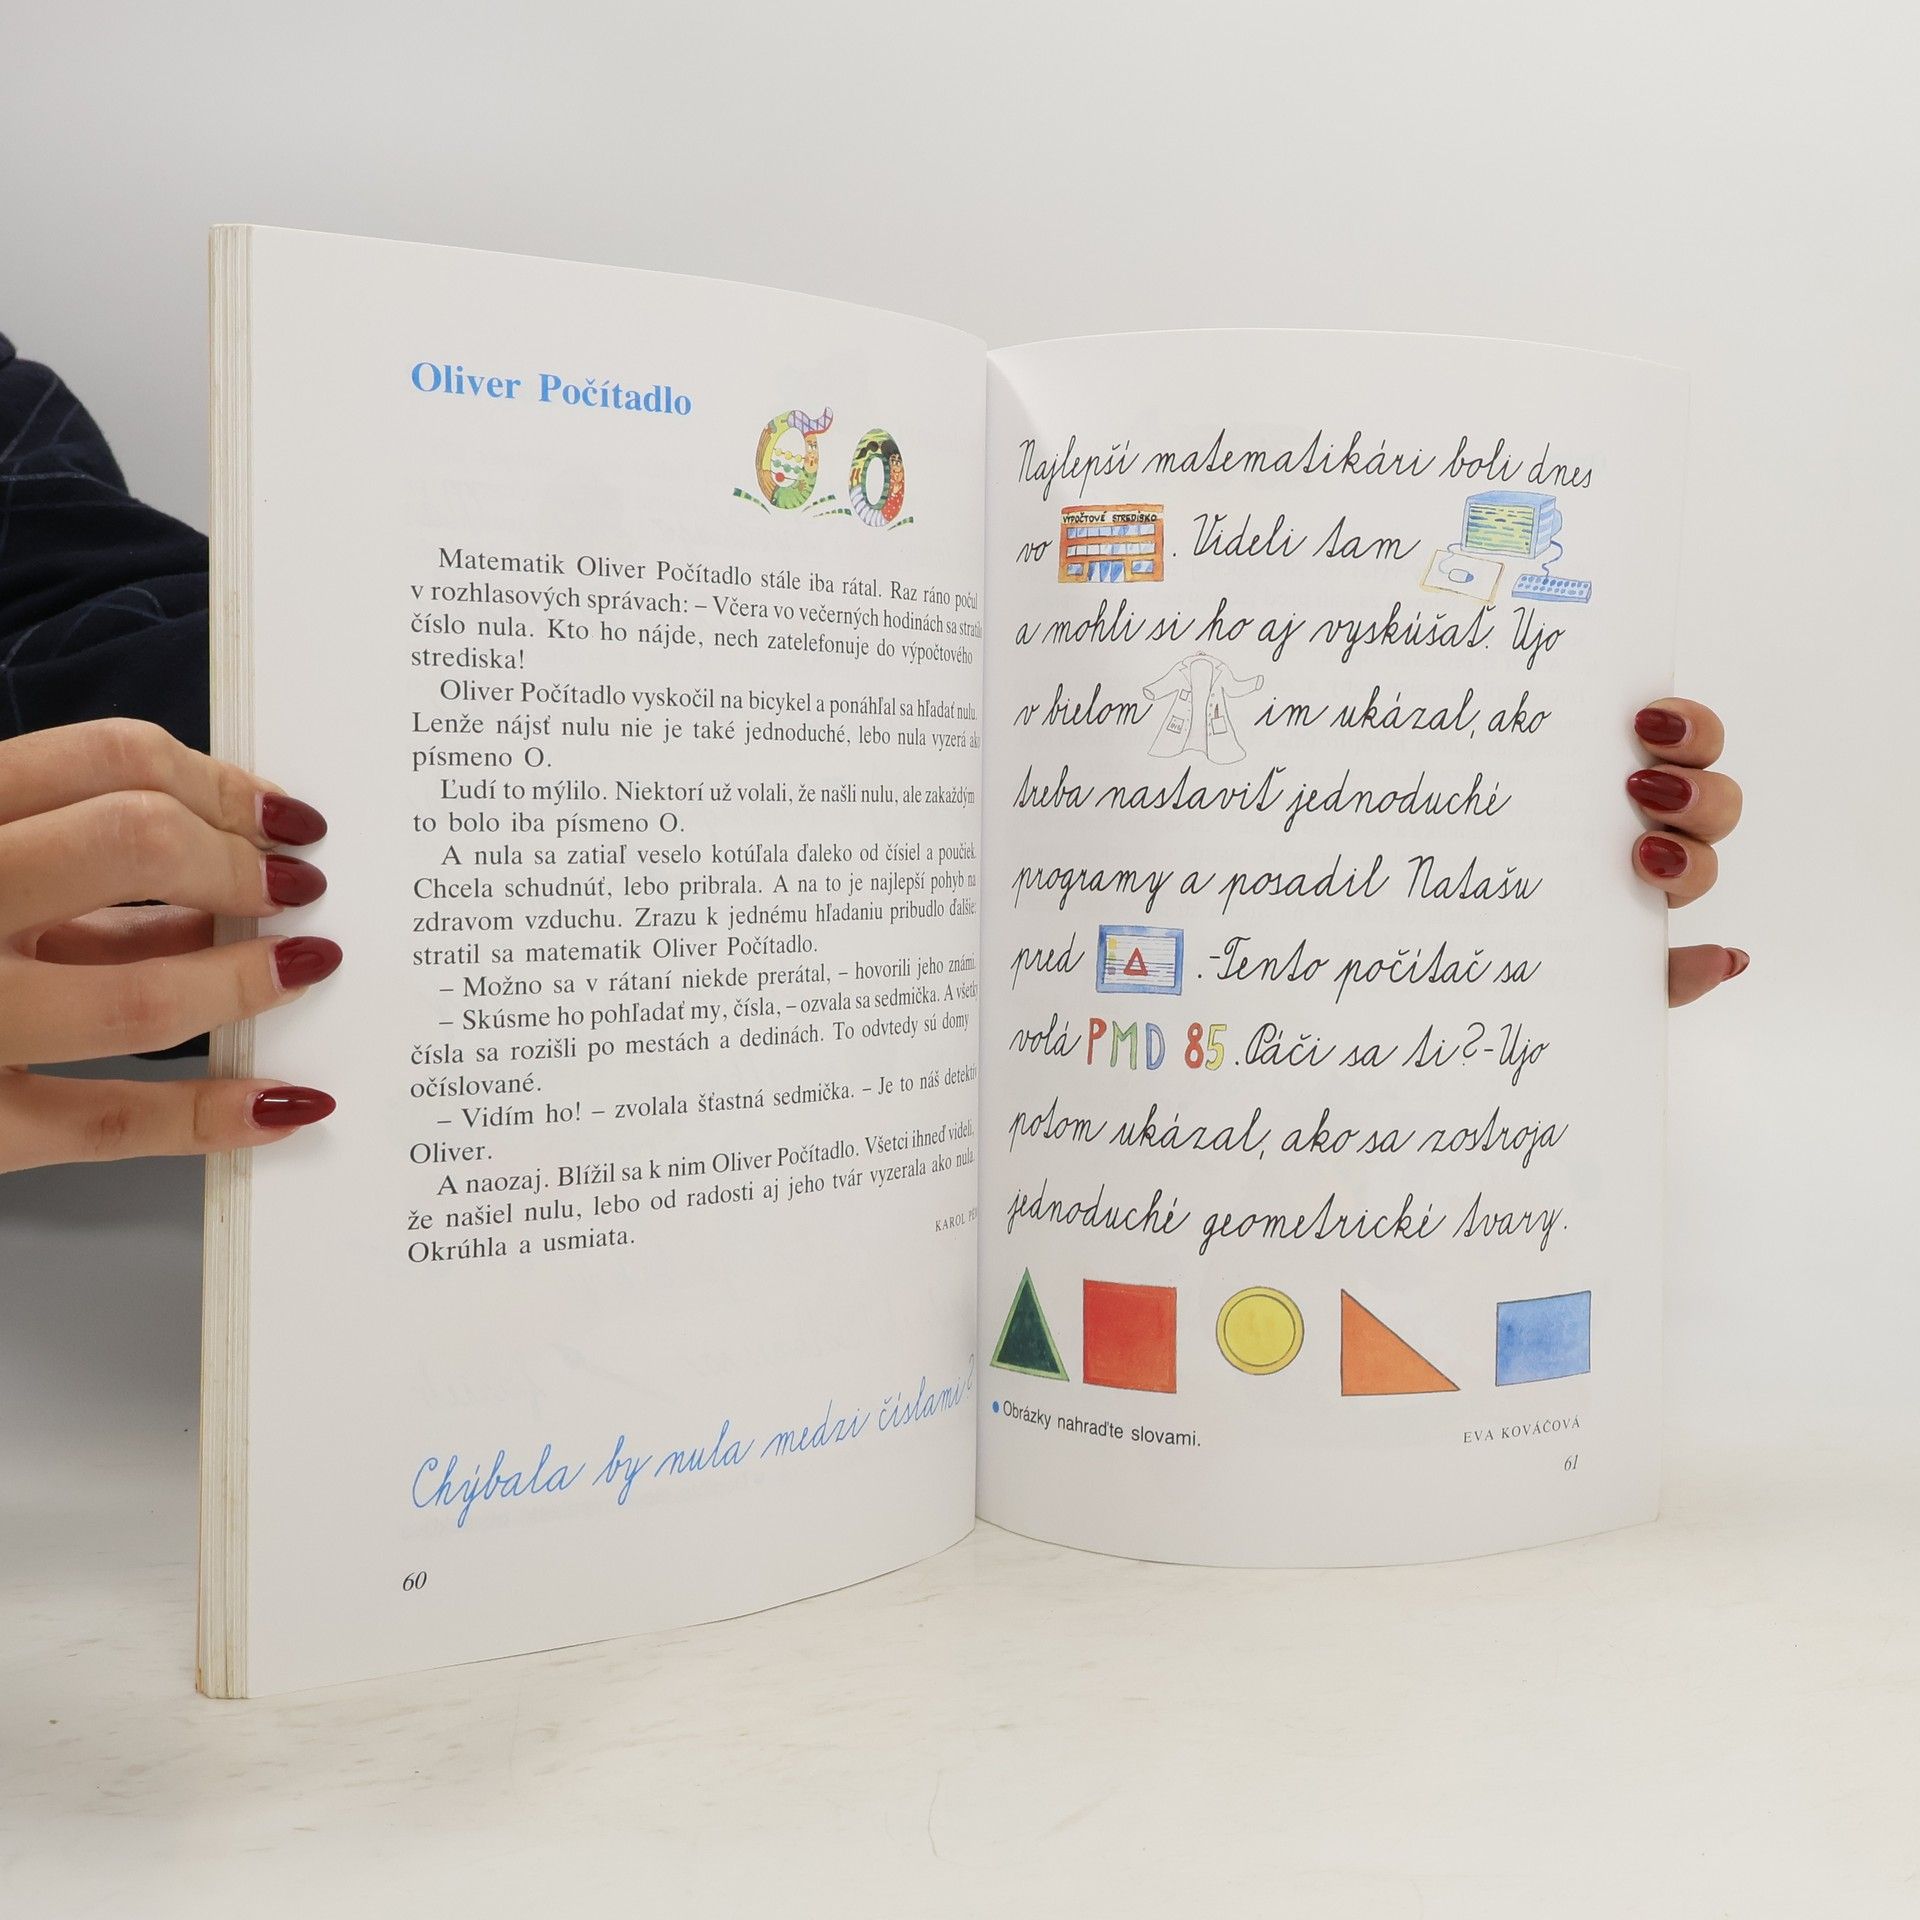 Oliver Počítadlo
Matematik Oliver Počítadlo stále iba rátal. Raz ráno počul
v rozhlasových správach: – Včera vo večerných hodinách sa stratilo
číslo nula. Kto ho nájde, nech zatelefonuje do výpočtového
strediska!
Oliver Počítadlo vyskočil na bicykel a ponáhľal sa hľadať nulu.
Lenže nájsť nulu nie je také jednoduché, lebo nula vyzerá ako
písmeno O.
Ľudí to mýlilo. Niektorí už volali, že našli nulu, ale zakaždým
to bolo iba písmeno O.
A nula sa zatiaľ veselo kotúľala ďaleko od čísiel a poučiek.
Chcela schudnúť, lebo pribrala. A na to je najlepší pohyb na
zdravom vzduchu. Zrazu k jednému hľadaniu pribudlo ďalšie:
stratil sa matematik Oliver Počítadlo.
– Možno sa v rátaní niekde prerátal, – hovorili jeho známi.
– Skúsme ho pohľadať my, čísla, – ozvala sa sedmička. A všetky
čísla sa rozišli po mestách a dedinách. To odvtedy sú domy
očíslované.
– Vidím ho! – zvolala šťastná sedmička. – Je to náš detektív
Oliver.
A naozaj. Blížil sa k nim Oliver Počítadlo. Všetci ihneď videli,
že našiel nulu, lebo od radosti aj jeho tvár vyzerala ako nula.
Okrúhla a usmiata.
KAROL
Chýbala by nula medzi číslami?
60
Najlepší matematikári boli dnes
vo VÝPOČTOVÉ STREDISKO . Videli tam
a mohli si ho aj vyskúšať. Ujo
v bielom im ukázal, ako
treba nastaviť jednoduché
programy a posadil Natašu
pred . – Tento počítač sa
volá PMD 85. Páči sa ti? – Ujo
potom ukázal, ako sa zostroja
jednoduché geometrické tvary.
• Obrázky nahraďte slovami.
EVA KOVÁČOVÁ
61